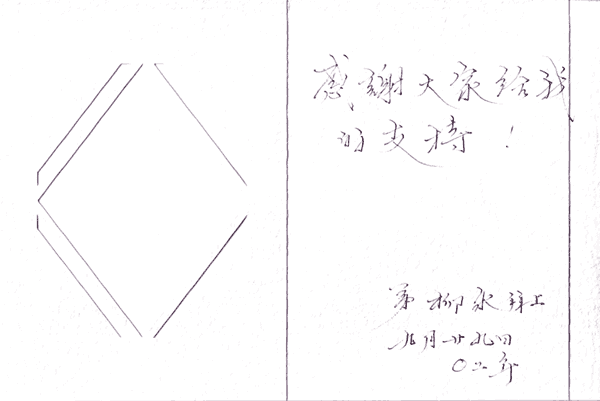 感謝大家給我
的支持！
弟柳永拜上
九月廿九日
〇二年